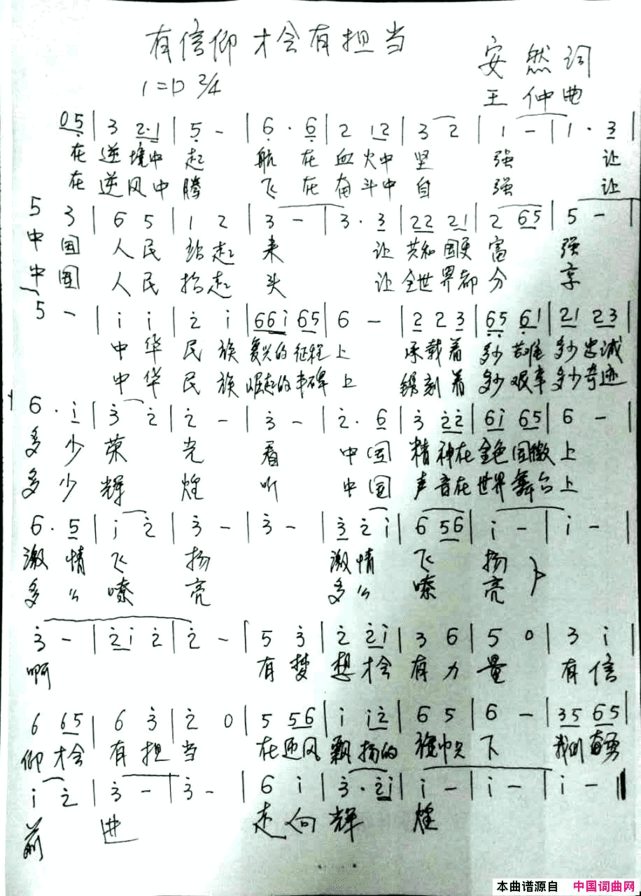 有信仰才会有担当
1=D 2/4
安然词
王仲曲
05 | 3 2·1 | 5 - | 6· 6 | 2 12 | 3 2 | 1 - | 1· 3 |
在逆境中起航在血火中坚强让
在逆风中腾飞在奋斗中自强让
5 3 | 6 5 | 1 2 | 3 - | 3· 3 | 22 21 | 2 65 | 5 - |
中国人民站起来让共和国更富强
中国人民抬起头让全世界都分享
5 - | i i | 2 i | 66i 65 | 6 - | 2 2 3 | 65 61 | 21 23 |
中华民族复兴的征程上承载着多少苦难多少忠诚
中华民族崛起的丰碑上镌刻着多少艰辛多少奇迹
6· i | 3 2 | 2 - | 3 - | 2· 6 | 3 22 | 6i 65 | 6 - |
多少荣光看中国精神在金色国徽上
多少辉煌听中国声音在世界舞台上
6· 5 | i 2 | 3 - | 3 - | 3 2i | 6 56 | i - | i - |
激情飞扬激情飞扬
多么嘹亮多么嘹亮
3 - | 2i 2 | 2 - | 5 3 | 2 2i | 3 6 | 5 0 | 3 i |
啊有梦想才会有力量有信
6 65 | 6 3 | 2 0 | 5 56 | i i2 | 6 5 | 6 - | 35 65 |
仰才会有担当在迎风飘扬的旗帜下我们奋勇
i 2 | 3 - | 3 - | 6 i | 3· 2i | i - | i - | i - ‖
前进走向辉煌
本曲谱源自 中国词曲网